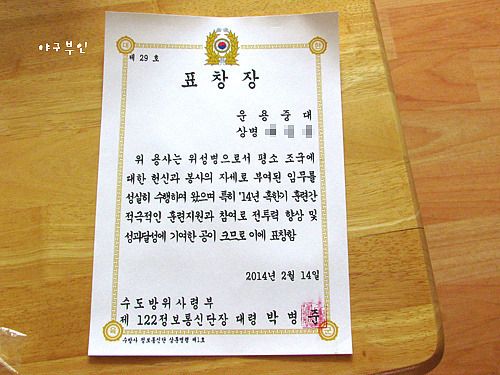 야구부인
대 한
제 29 호
표 창 장
운 용 중 대
상병
위 용사는 위성병으로서 평소 조국에
대한 헌신과 봉사의 자세로 부여된 임무를
성실히 수행하여 왔으며 특히 '14년 혹한기 훈련간
적극적인 훈련지원과 참여로 전투력 향상 및
성과달성에 기여한 공이 크므로 이에 표창함
2014년 2월 14일
수도방위사령부
제 122정보통신단장 대령 박 병 준
수방사 정보통신단 상훈명령 제1호